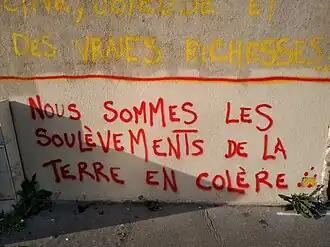 JOYEUSE ET
DES VRAIES RICHESSES
NOUS SOMMES LES
SOULÈVEMENTS DE LA
TERRE EN COLÈRE